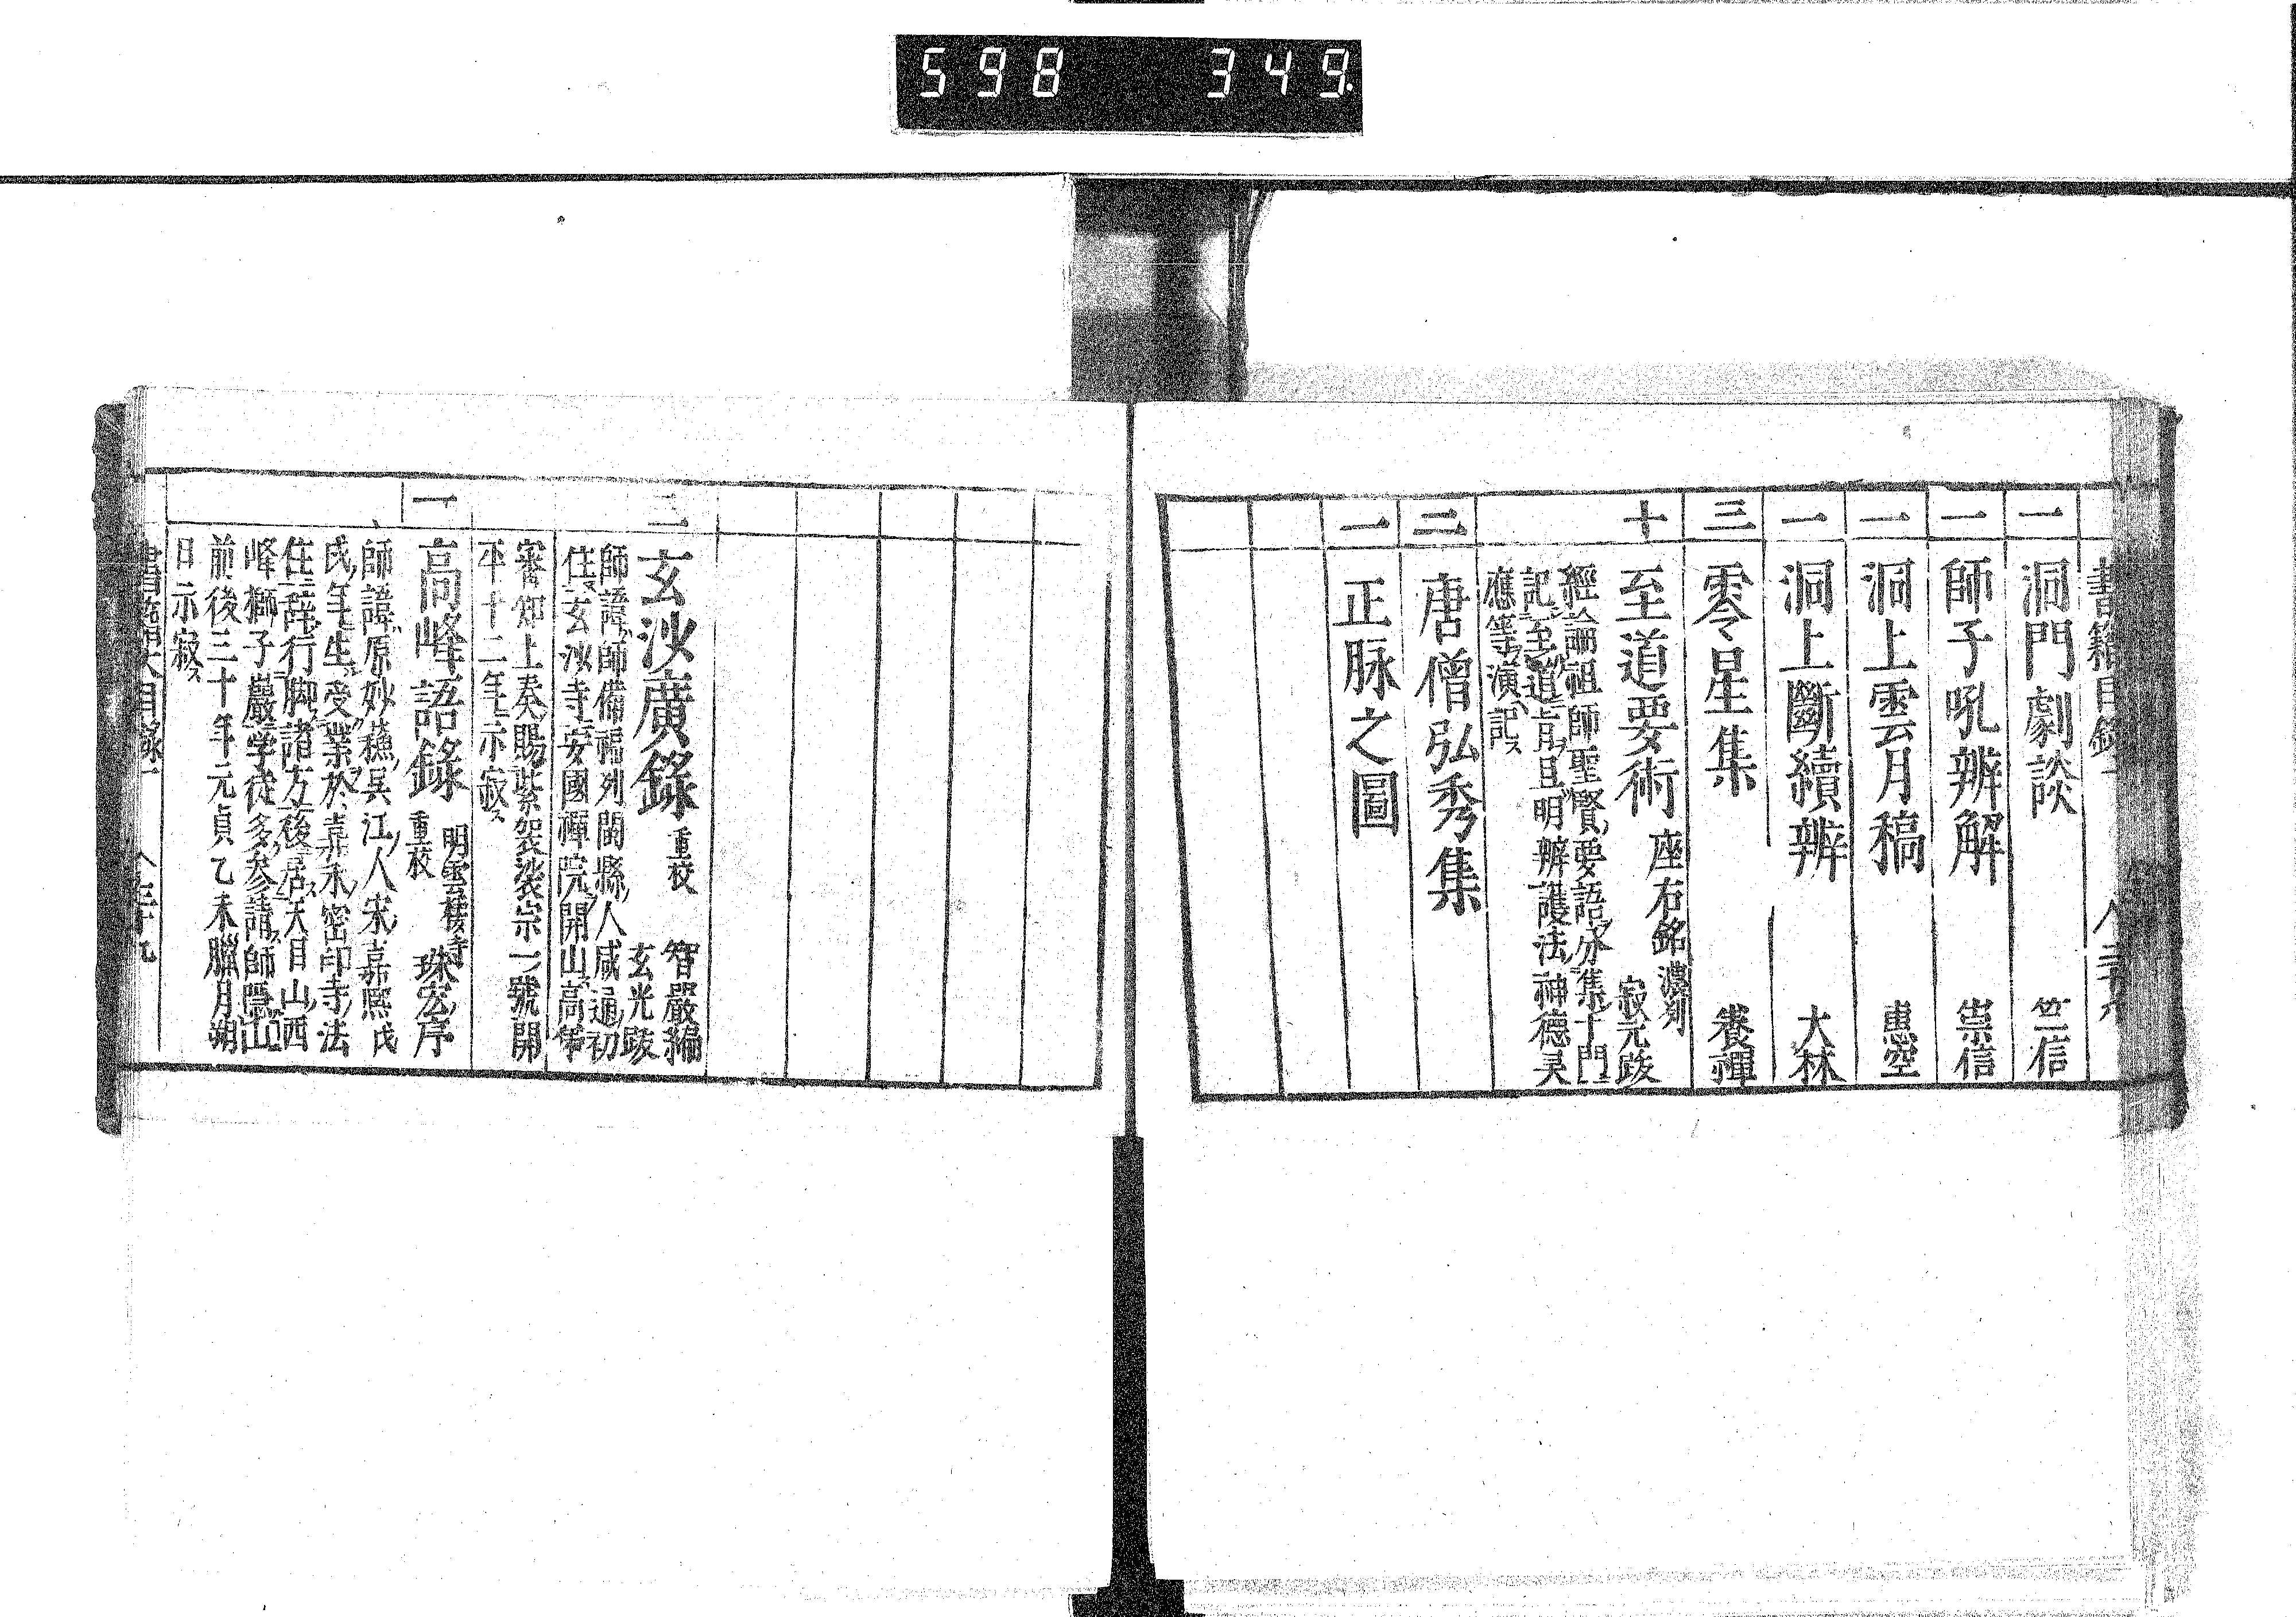 598 349
書籍目録一
一 洞門劇談 竺信
一 師子吼辨解 崇信
一 洞上雲月稿 惠空
一 洞上斷續辨 大林
三 零星集 養禪
十 至道要術 座右銘 濃刻 寂元跋
經論祖師聖賢ノ要語ヲ分集十門
記至道肯且明辨護法神德昊
應等ヲ演記ス
二 唐僧弘秀集
一 正脉之圖
二 玄沙廣録 重校 智嚴編 玄光跋
師諱師備福列閩縣ノ人咸通ノ初
住ス玄沙寺安國禪院開山ス高
審知上奏賜紫袈裟宗一號開
平十二年示寂ス
一 高峰語録 明雲棲寺 重校 珠宏序
師諱原妙蘓呉江ノ人宋ノ嘉熙戊
戌年生受業於嘉禾ノ密印寺ノ法
住辞行脚諸方後居ス天目山ノ西
峰獅子巖学徒多参請師隱山
前後三十年元貞乙未臘月朔
日示寂ス